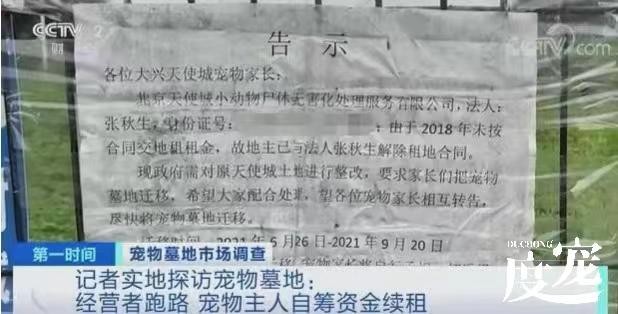 CCTV 2
财
CCTV 2
告 示
各位大兴天使城宠物家长：
北京天使城小动物尸体无害化处理服务有限公司，法人：
张秋生，身份证号：
：由于2018年未按
合同交地租租金，故地主已与法人张秋生解除租地合同。
现政府需对原天使城土地进行整改，要求家长们把宠物
墓地迁移，希望大家配合处理，望各位宠物家长相互转告，
尽快将宠物墓地迁移。
2021年5月26-2021年9月20日
第一时间
宠物墓地市场调查
记者实地探访宠物墓地：
经营者跑路 宠物主人自筹资金续租
DUCHONG
度宠